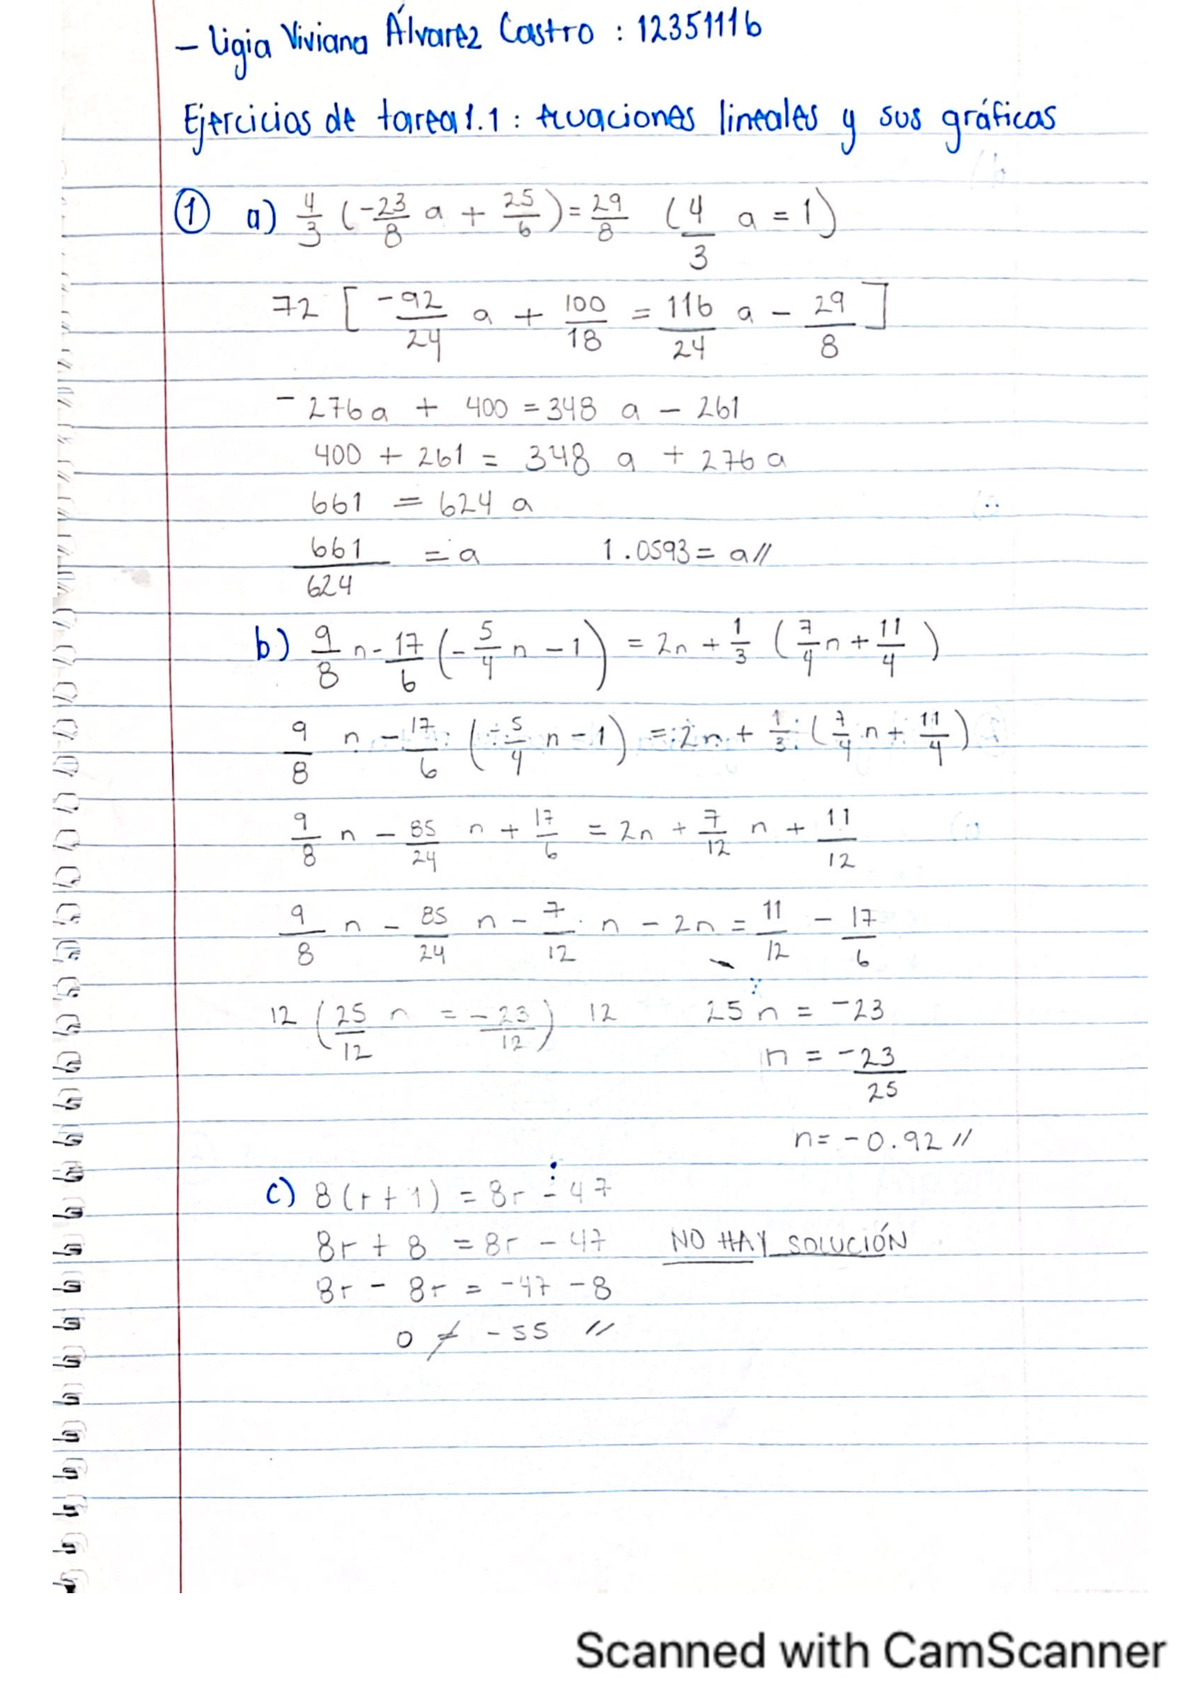 - Ligia Viviana Álvarez Castro : 12351116
Ejercicios de tarea 1.1 : Ecuaciones lineales y sus gráficas
① a) 4/3 (-23/8 a + 25/6) = 29/8 (4/3 a = 1)
72 [ -92/24 a + 100/18 = 116/24 a - 29/8 ]
-276a + 400 = 348 a - 261
400 + 261 = 348 a + 276 a
661 = 624 a
661/624 = a 1.0593 = a //
b) 9/8 n - 17/6 (-5/4 n - 1) = 2n + 1/3 (7/4 n + 11/4)
9/8 n - 17/6 (-5/4 n - 1) = 2n + 1/3 (7/4 n + 11/4)
9/8 n - 85/24 n + 17/6 = 2n + 7/12 n + 11/12
9/8 n - 85/24 n - 7/12 n - 2n = 11/12 - 17/6
12 (25/12 n = -23/12) 12 25 n = -23
n = -23/25
n = -0.92 //
c) 8(r + 1) = 8r - 47
8r + 8 = 8r - 47 NO HAY SOLUCIÓN
8r - 8r = -47 - 8
0 ≠ -55 //
Scanned with CamScanner